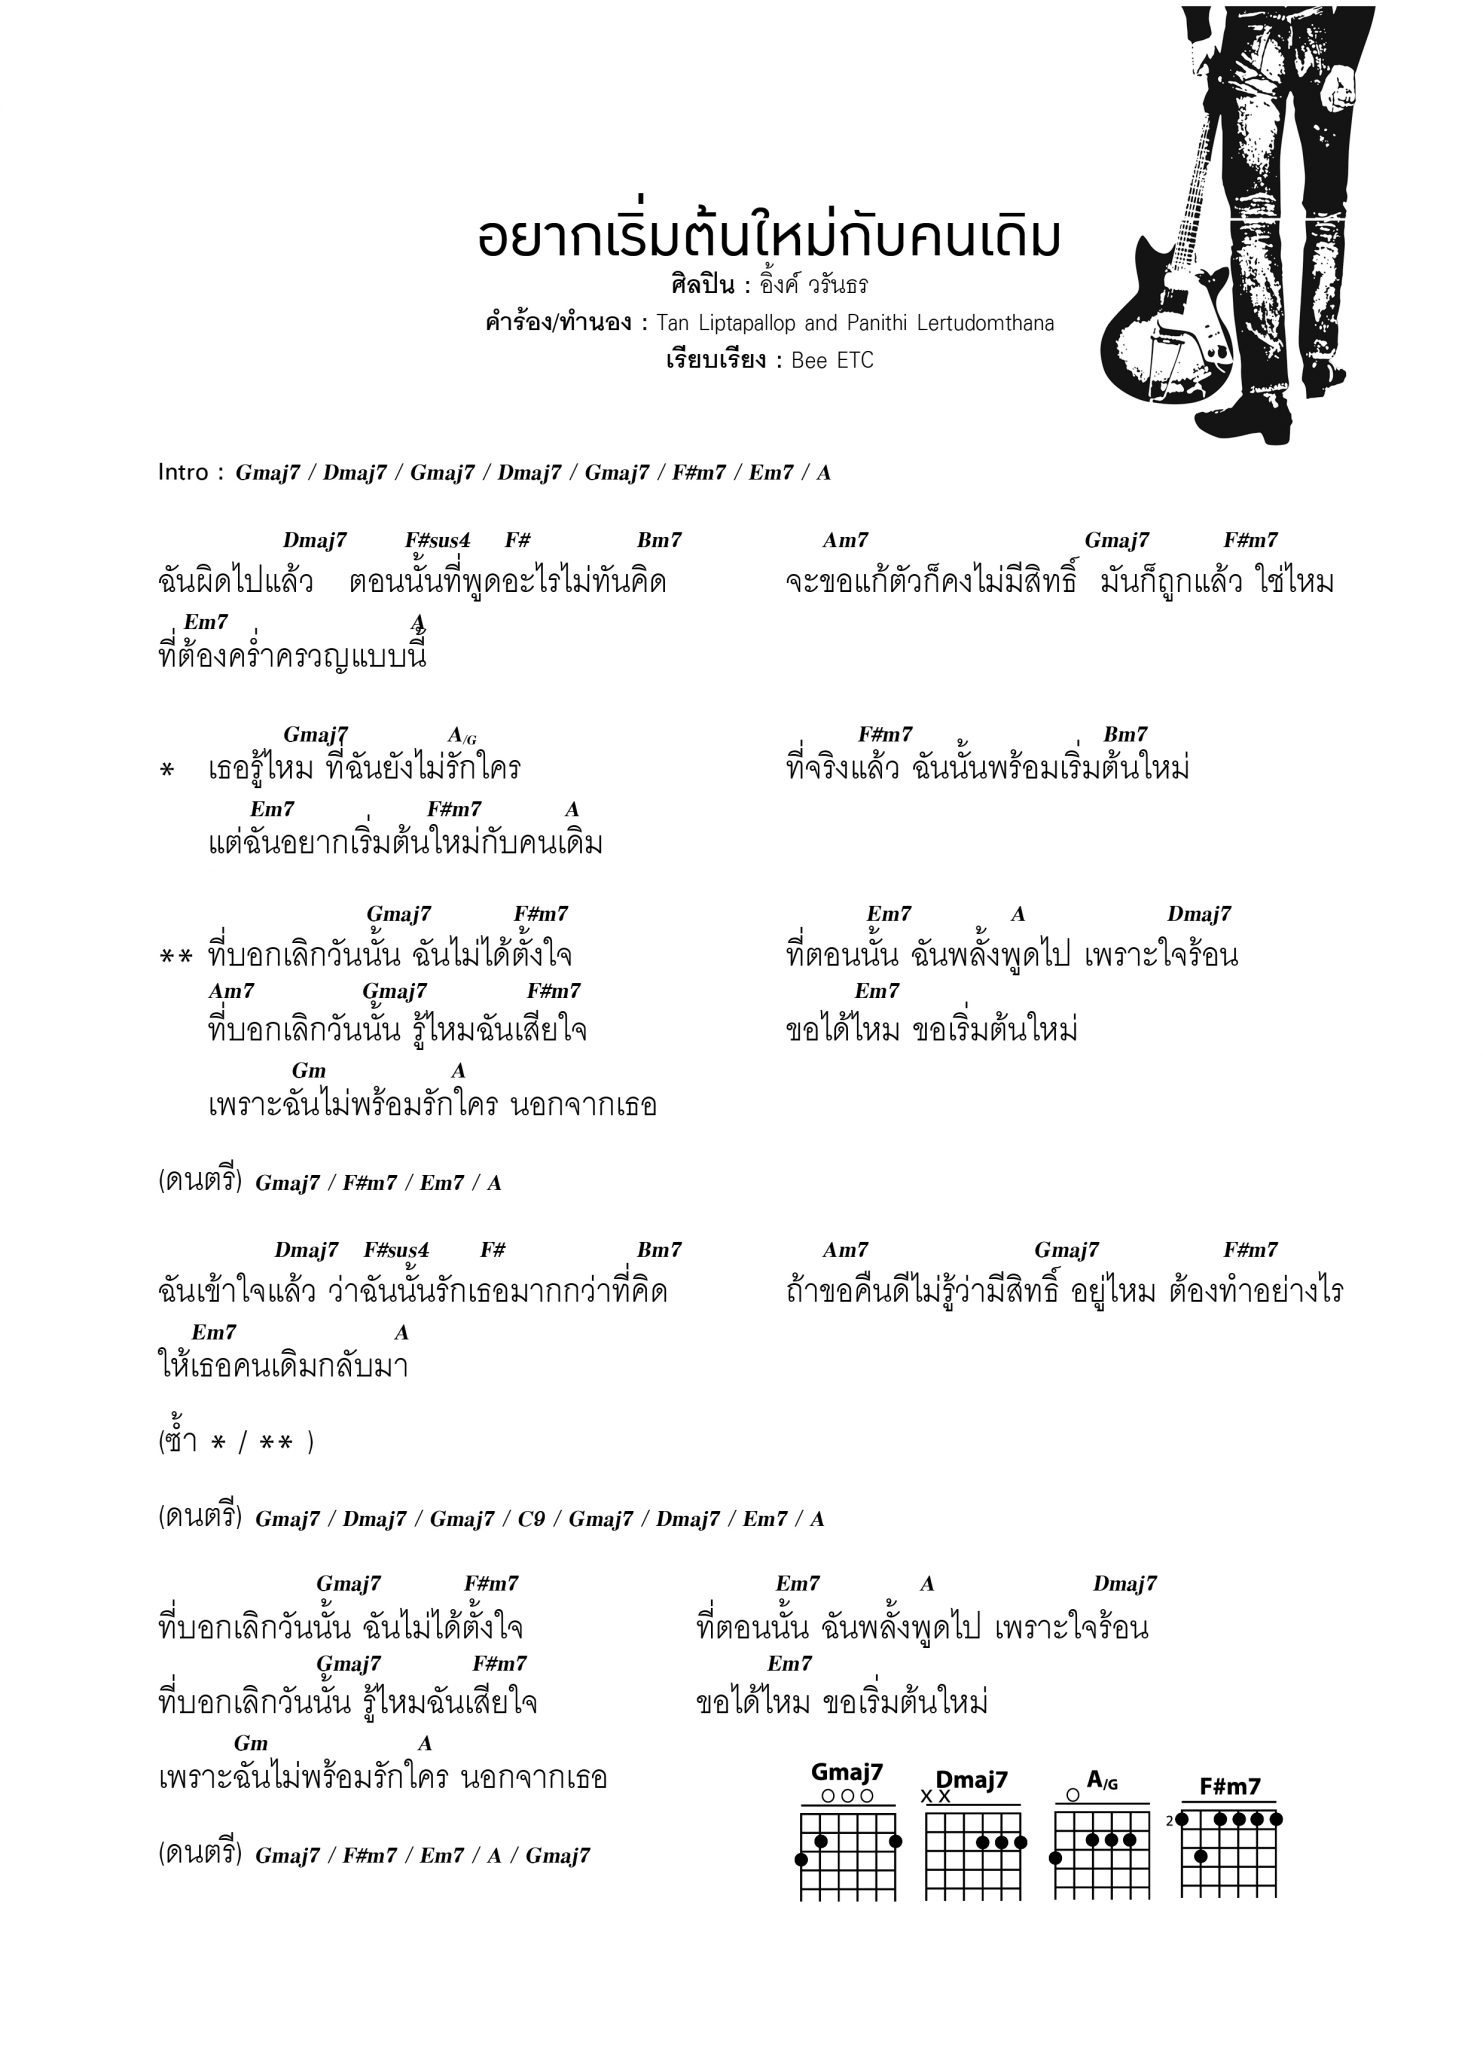 อยากเริ่มต้นใหม่กับคนเดิม
ศิลปิน : อิ้งค์ วรันธร
คำร้อง/ทำนอง : Tan Liptapallop and Panithi Lertudomthana
เรียบเรียง : Bee ETC
Intro : Gmaj7 / Dmaj7 / Gmaj7 / Dmaj7 / Gmaj7 / F#m7 / Em7 / A
Dmaj7 F#sus4 F# Bm7 Am7 Gmaj7 F#m7
ฉันผิดไปแล้ว ตอนนั้นที่พูดอะไรไม่ทันคิด จะขอแก้ตัวก็คงไม่มีสิทธิ์ มันก็ถูกแล้ว ใช่ไหม
Em7 A
ที่ต้องคร่ำครวญแบบนี้
Gmaj7 A/G F#m7 Bm7
* เธอรู้ไหม ที่ฉันยังไม่รักใคร ที่จริงแล้ว ฉันนั้นพร้อมเริ่มต้นใหม่
Em7 F#m7 A
แต่ฉันอยากเริ่มต้นใหม่กับคนเดิม
Gmaj7 F#m7 Em7 A Dmaj7
** ที่บอกเลิกวันนั้น ฉันไม่ได้ตั้งใจ ที่ตอนนั้น ฉันพลั้งพูดไป เพราะใจร้อน
Am7 Gmaj7 F#m7 Em7
ที่บอกเลิกวันนั้น รู้ไหมฉันเสียใจ ขอได้ไหม ขอเริ่มต้นใหม่
Gm A
เพราะฉันไม่พร้อมรักใคร นอกจากเธอ
(ดนตรี) Gmaj7 / F#m7 / Em7 / A
Dmaj7 F#sus4 F# Bm7 Am7 Gmaj7 F#m7
ฉันเข้าใจแล้ว ว่าฉันนั้นรักเธอมากกว่าที่คิด ถ้าขอคืนดีไม่รู้ว่ามีสิทธิ์ อยู่ไหม ต้องทำอย่างไร
Em7 A
ให้เธอคนเดิมกลับมา
(ซ้ำ * / ** )
(ดนตรี) Gmaj7 / Dmaj7 / Gmaj7 / C9 / Gmaj7 / Dmaj7 / Em7 / A
Gmaj7 F#m7 Em7 A Dmaj7
ที่บอกเลิกวันนั้น ฉันไม่ได้ตั้งใจ ที่ตอนนั้น ฉันพลั้งพูดไป เพราะใจร้อน
Gmaj7 F#m7 Em7
ที่บอกเลิกวันนั้น รู้ไหมฉันเสียใจ ขอได้ไหม ขอเริ่มต้นใหม่
Gm A
เพราะฉันไม่พร้อมรักใคร นอกจากเธอ
(ดนตรี) Gmaj7 / F#m7 / Em7 / A / Gmaj7
Gmaj7 Dmaj7 A/G F#m7
x x
2